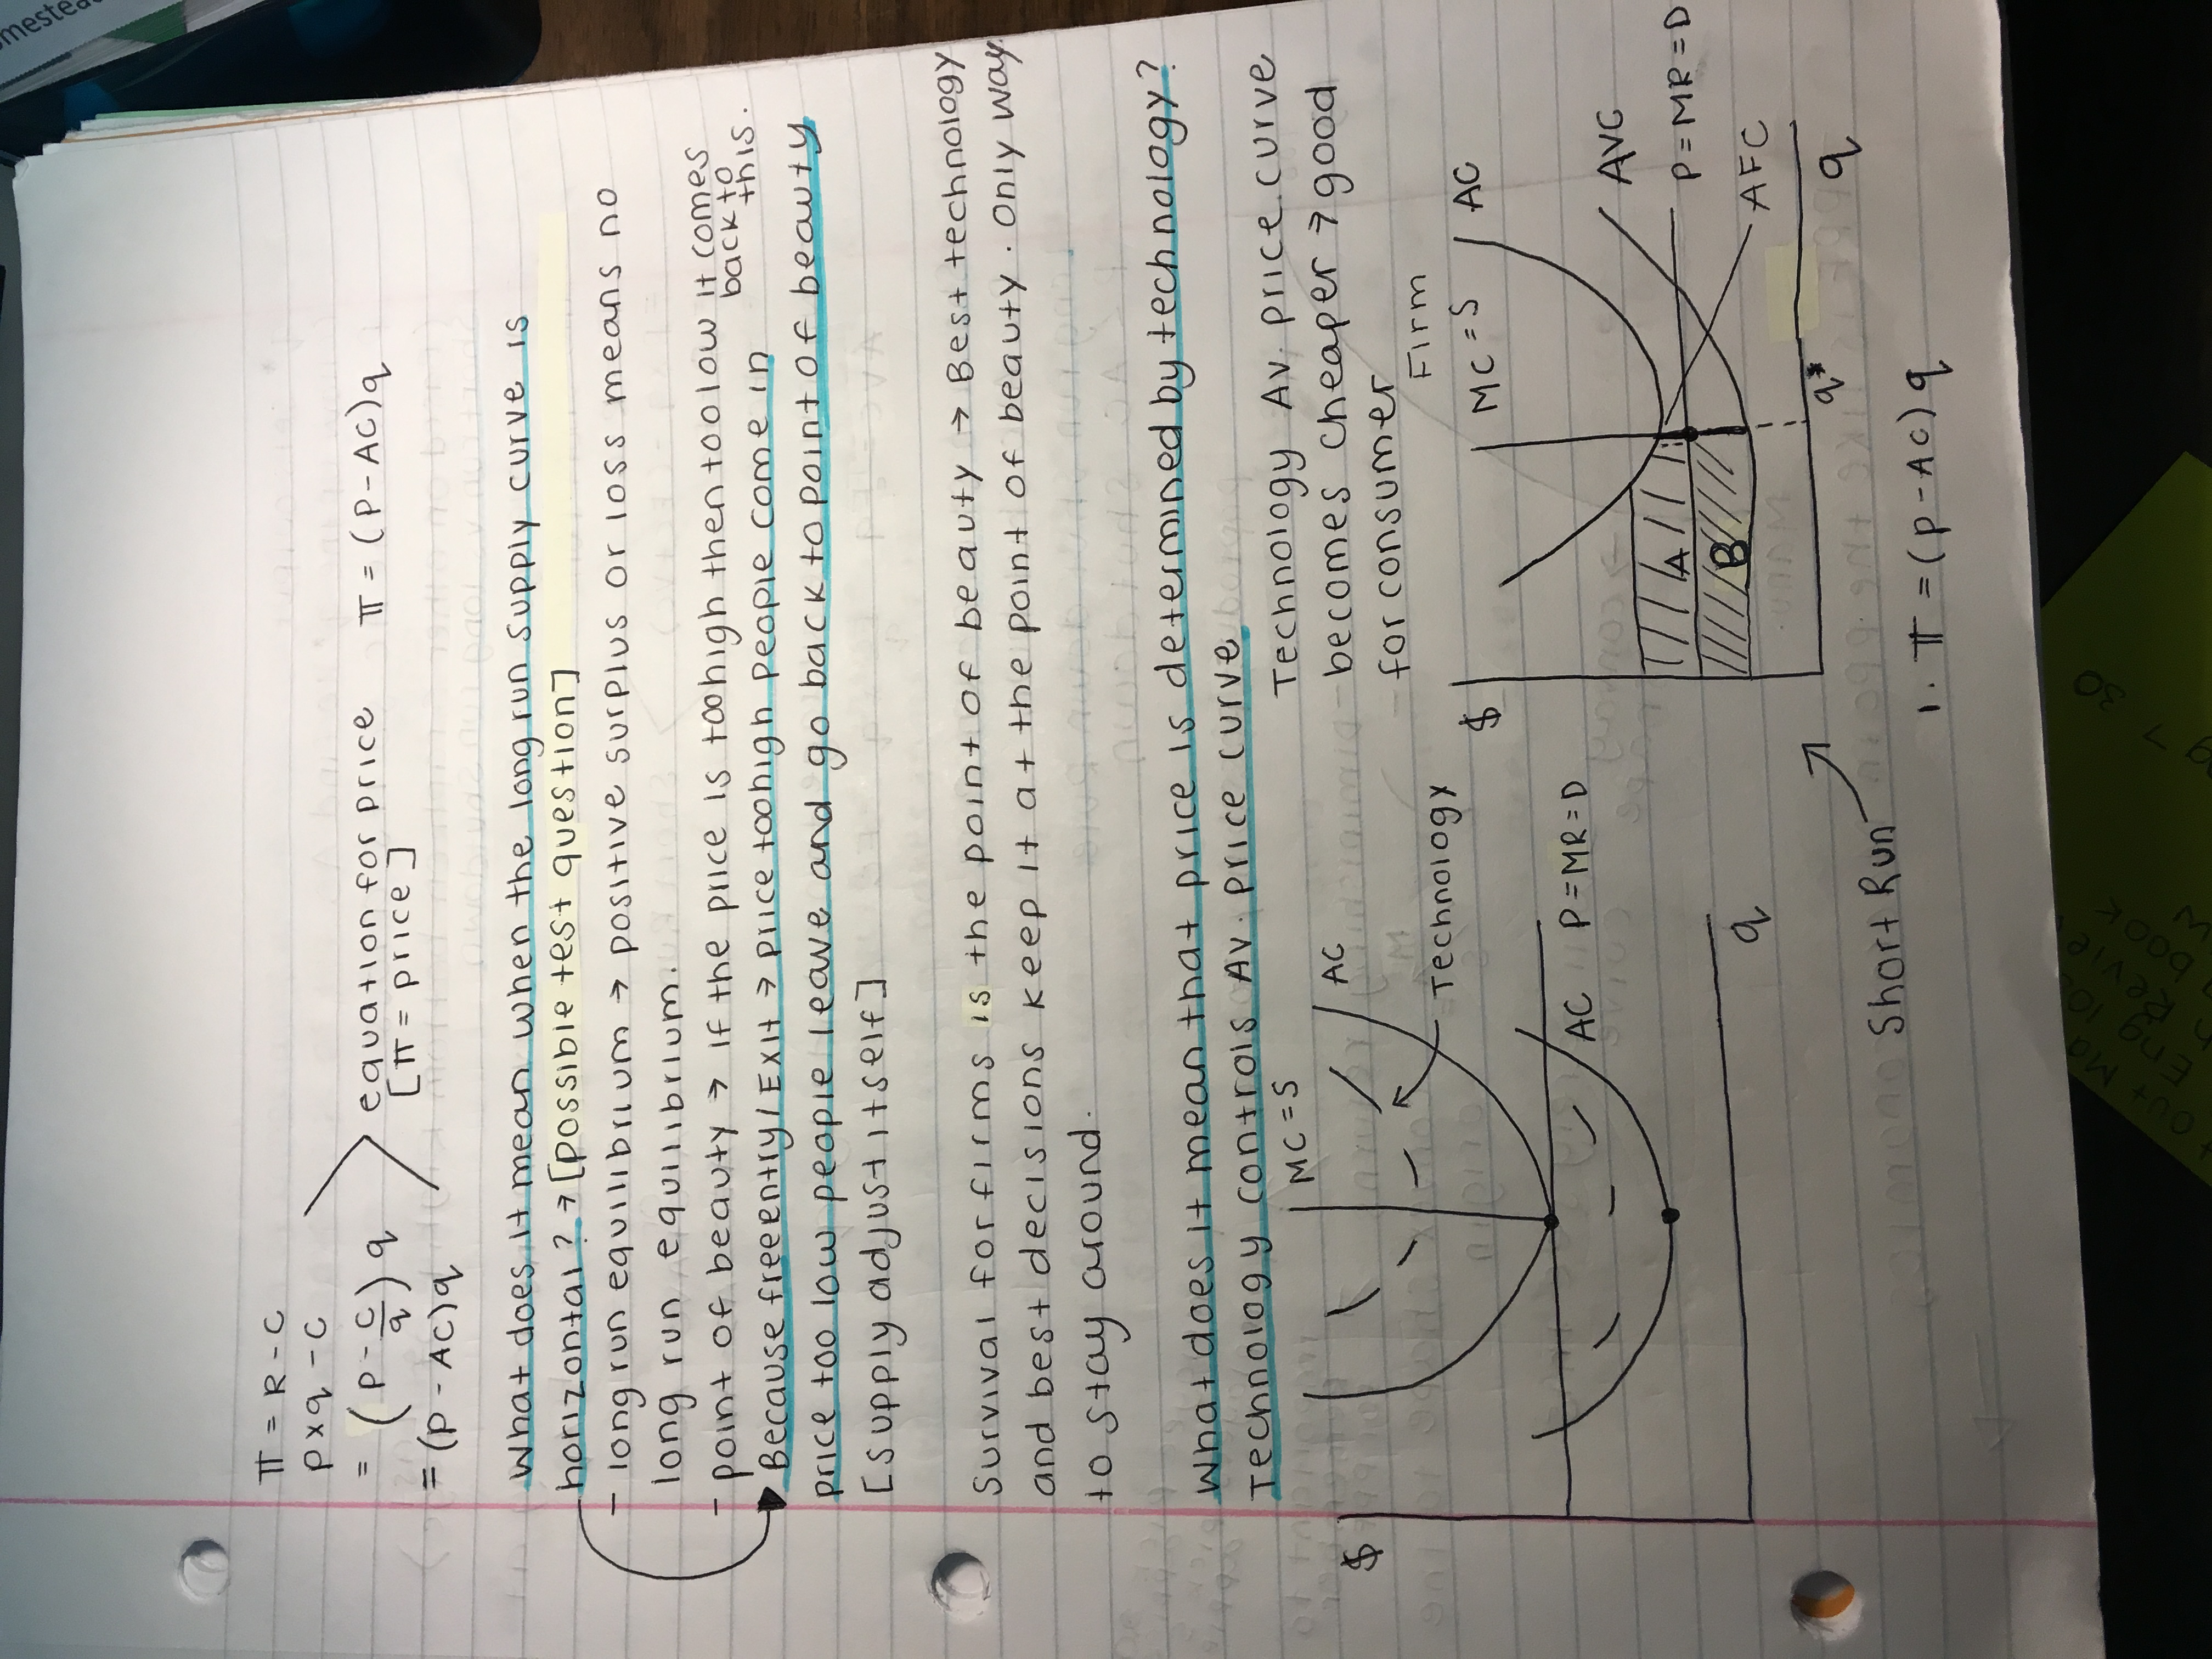 π = R - C
p x q - C
= (p - c/q) q
= (p - AC)q
equation for price
[π = price]
π = (P - AC)q
What does it mean when the long run supply curve is
horizontal? → [possible test question]
- long run equilibrium → positive surplus or loss means no
long run equilibrium.
- point of beauty → if the price is too high then too low it comes
back to
this.
Because free entry/Exit → price too high people come in
price too low people leave and go back to point of beauty
[supply adjust itself]
Survival for firms is the point of beauty → Best technology
and best decisions keep it at the point of beauty. Only way
to stay around.
What does it mean that price is determined by technology?
Technology controls Av. price curve
Technology Av. price curve
becomes cheaper → good
for consumer
$
MC = S
AC
Technology
P = MR = D
AC
q
Short Run
Firm
$
MC = S
AC
AVC
P = MR = D
AFC
A
B
q*
q
1. π = (p - AC) q
30